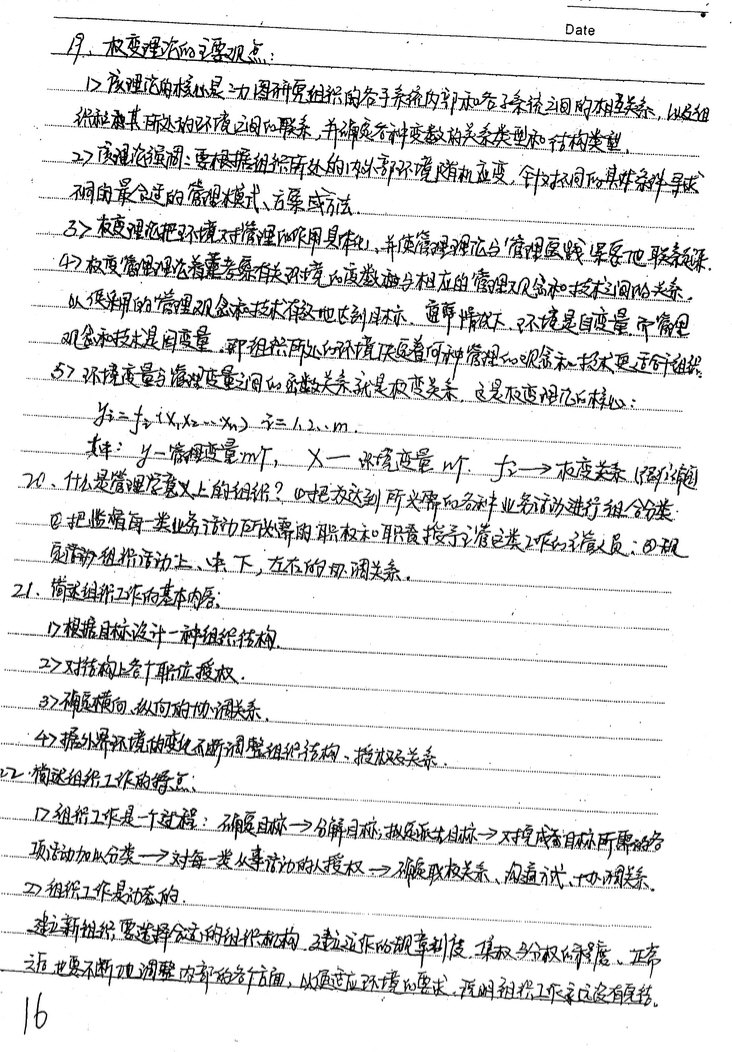 Date
19、权变理论的主要观点：
1> 该理论的核心是：力图研究组织的各子系统内部和各子系统之间的相互关系，以及组
织和其所处的环境之间的联系，并确定各种变数的关系类型和结构类型。
2> 该理论强调：要根据组织所处的内外部环境随机应变，针对不同的具体条件寻求
不同的最合适的管理模式、方案或方法。
3> 权变理论把环境对管理的作用具体化，并使管理理论与管理实践紧密地联系起来。
4> 权变管理理论着重考察有关环境的变数与相应的管理观念和技术之间的关系，
以使采用的管理观念和技术有效地达到目标。通常情况下，环境是自变量，而管理
观念和技术是因变量。即组织所处的环境决定着何种管理的观念和技术更适合于组织。
5> 环境变量与管理变量之间的函数关系就是权变关系，这是权变理论的核心：
yi=fi(x₁,x₂…xn) i=1.2..m.
其中：y—管理变量m个, X—环境变量n个. fi→权变关系
20、什么是管理学意义上的组织？①把为达到所必需的各种业务活动进行组合分类
②把监督每一类业务活动所必需的职权和职责授予主管这类工作的主管人员；③规
定 组织活动上、中、下，左右的协调关系。
21. 简述组织工作的基本内容：
1> 根据目标设计一种组织结构.
2> 对结构上各个职位授权.
3> 确定横向、纵向的协调关系.
4> 据外界环境的变化不断调整组织结构、授权及关系.
22. 简述组织工作的特点：
1> 组织工作是一个过程：确定目标→分解目标，拟定派生目标→对完成目标所需的各
项活动加以分类→对每一类从事活动的人授权→确定职权关系、沟通方式、协调关系。
2> 组织工作是动态的.
建立新组织要选择合适的组织机构，建立运作的规章制度，集权与分权的程度、正常
之后也要不断加调整内部的各个方面，以便适应环境的要求，说明组织工作永远没有完结。
16